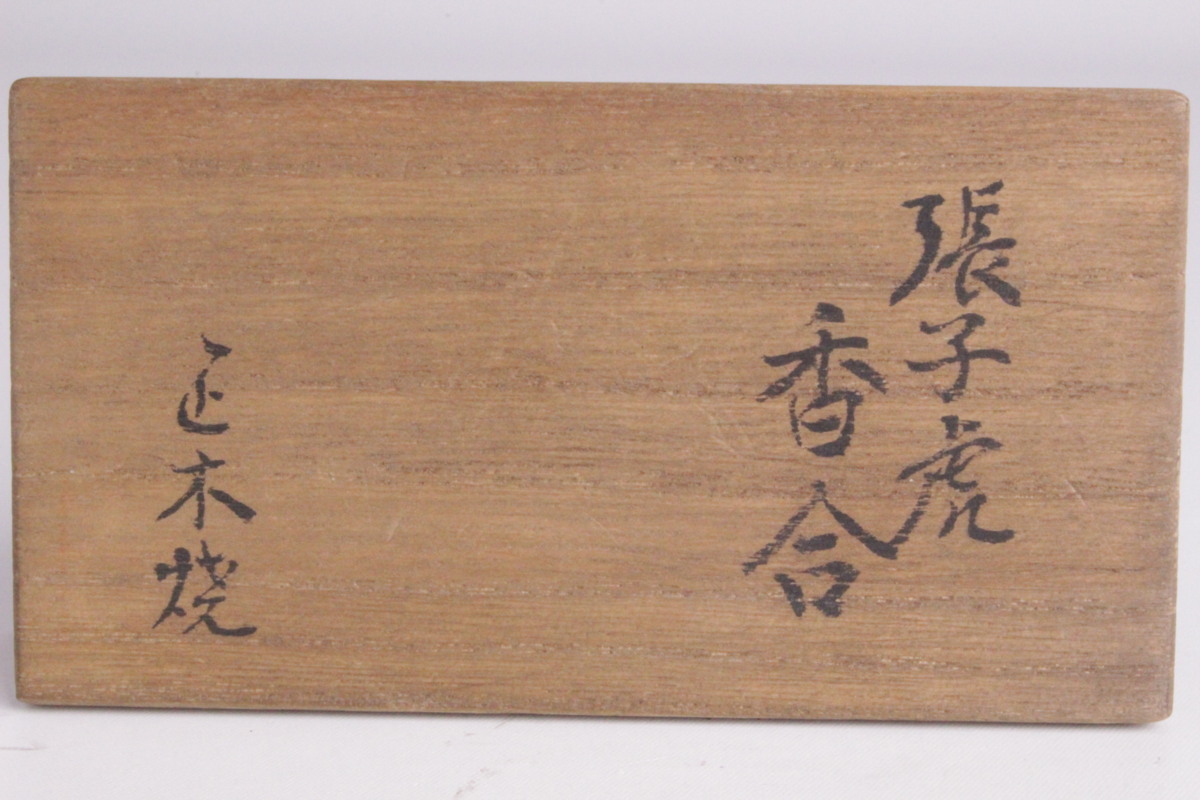 張子虎
香合
正木焼